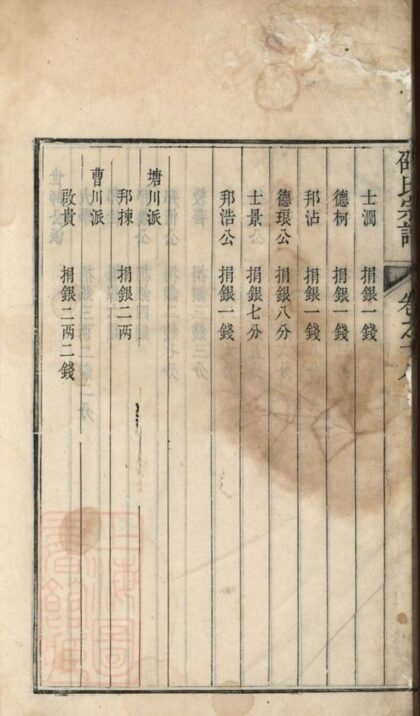 邵氏宗譜
卷之十八
士潤　捐銀一錢
德柯　捐銀一錢
邦沾　捐銀一錢
德琅公　捐銀八分
士景公　捐銀七分
邦浩公　捐銀一錢
塘川派
邦揀　捐銀二兩
曹川派
啟貴　捐銀二兩二錢